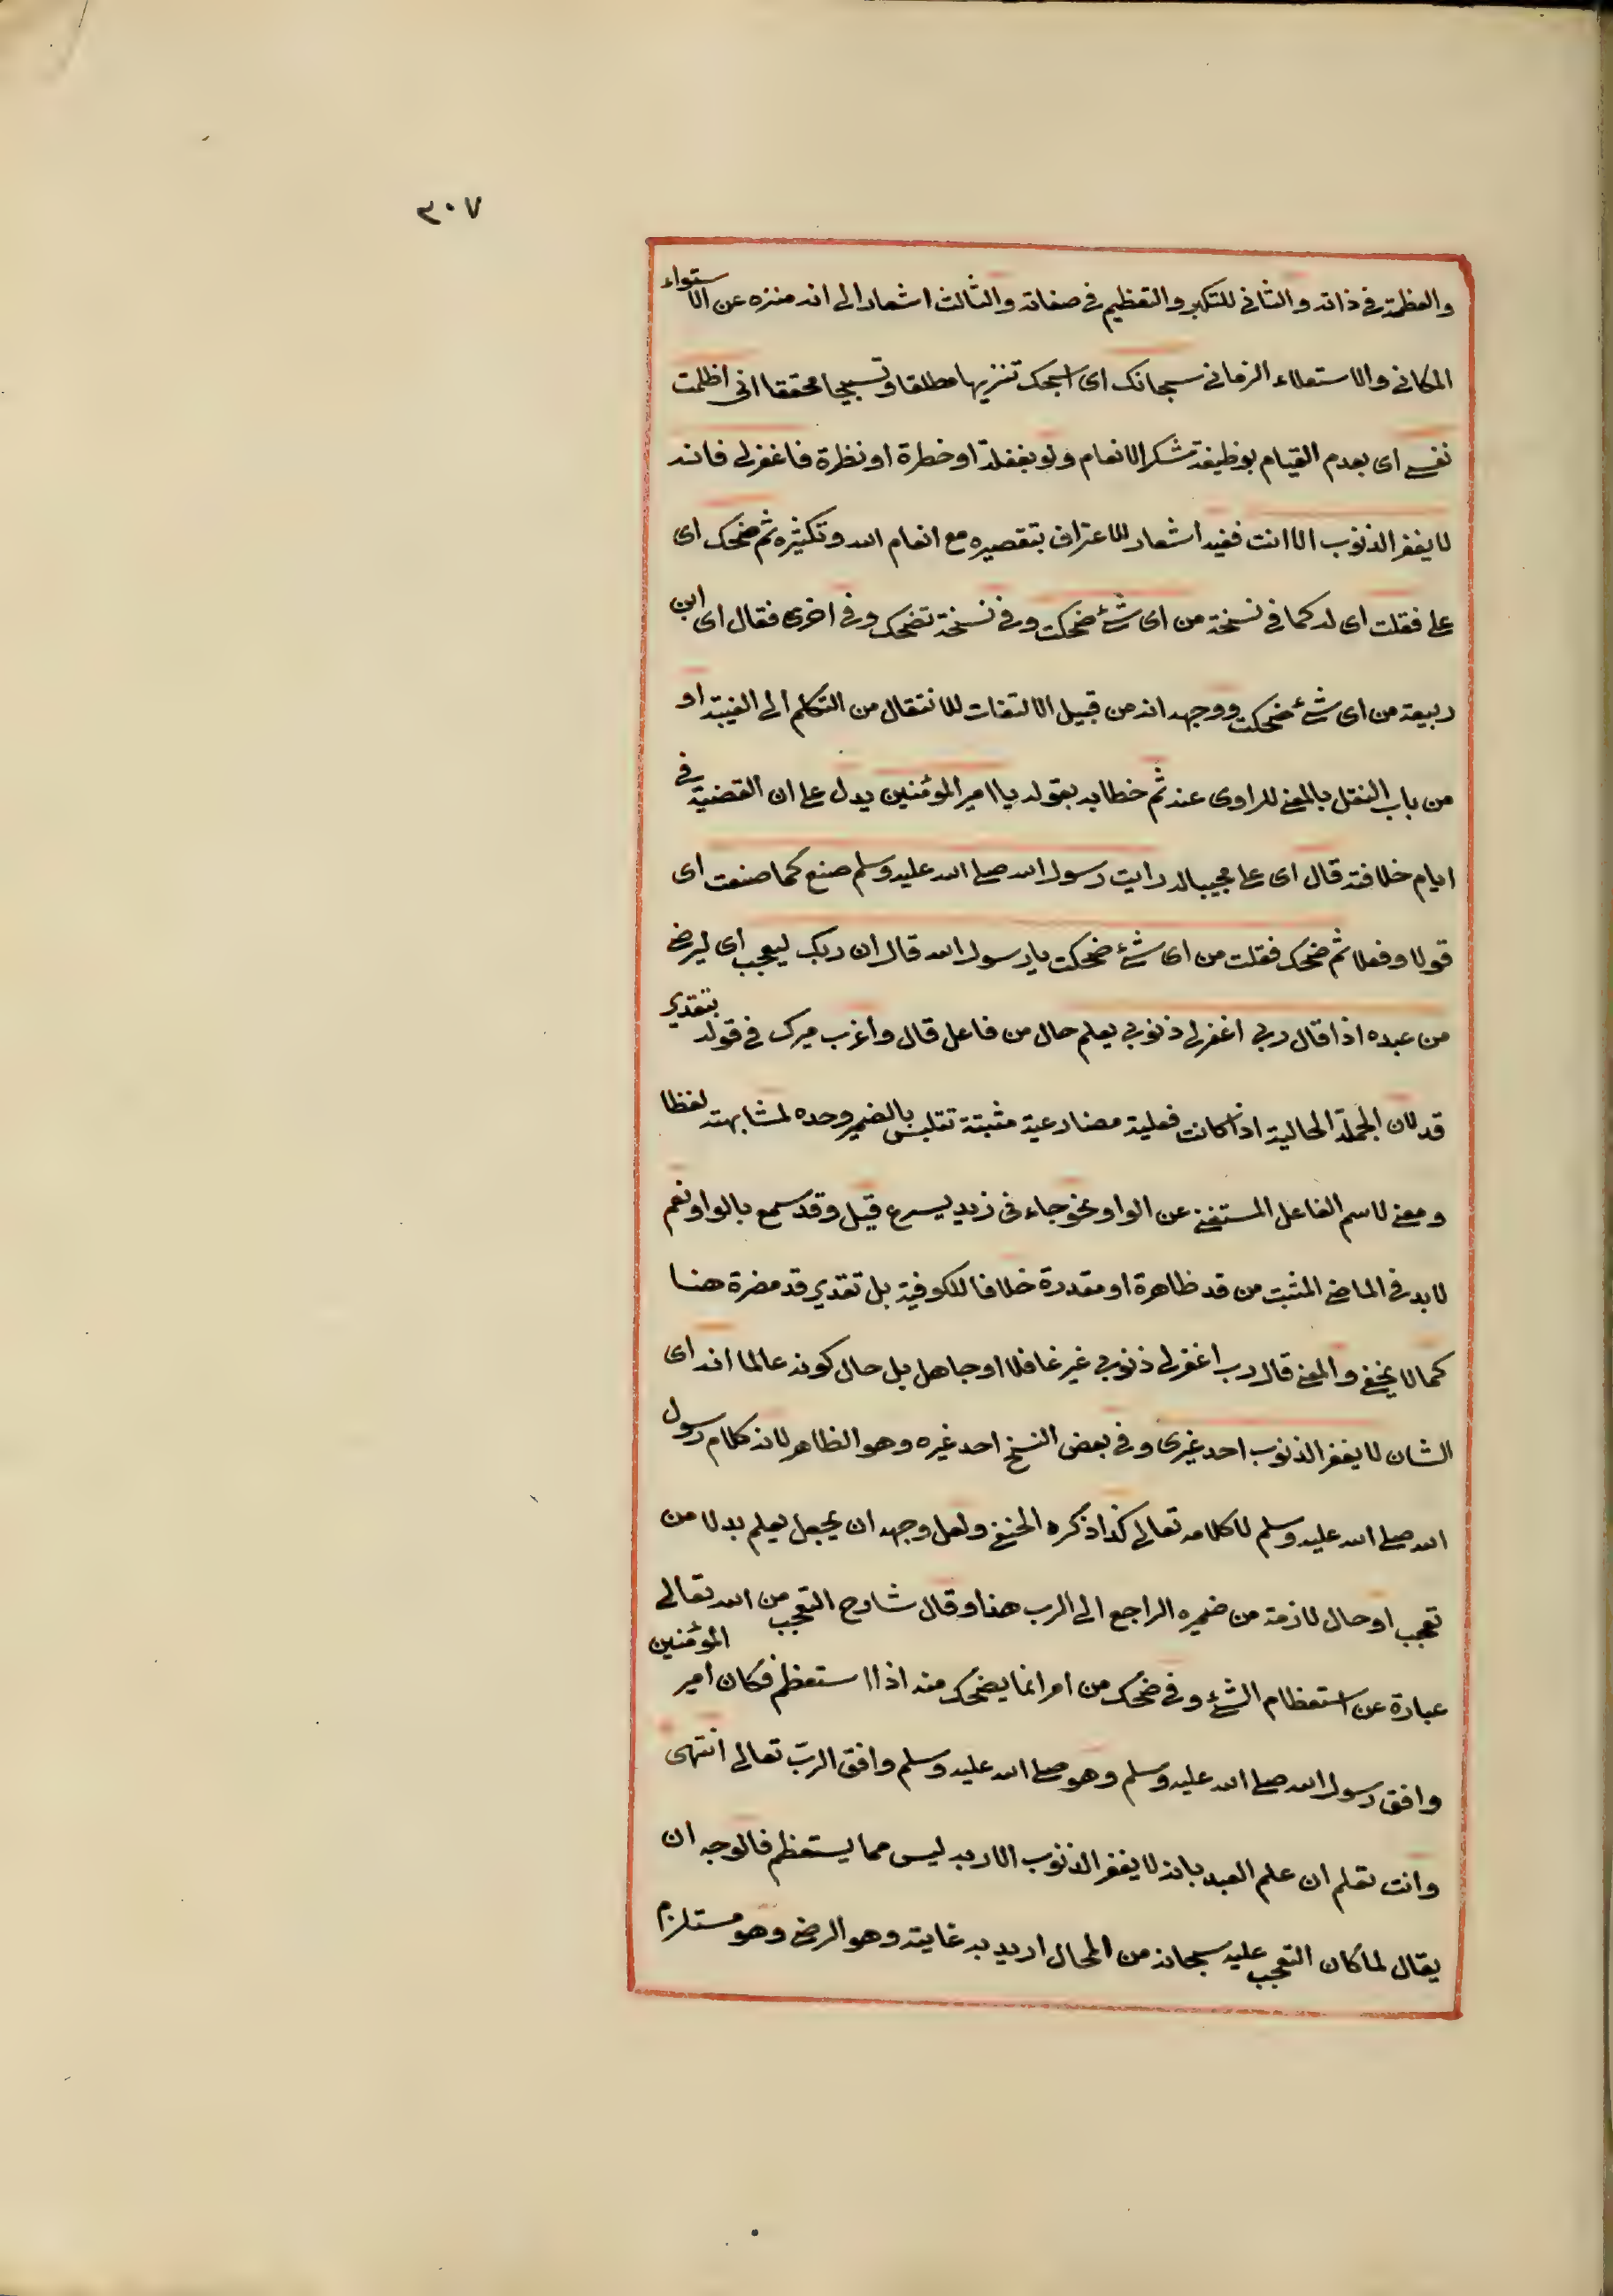 ٣٠٧
والعظمة فى ذاته والثانى للتكبر والتعظيم فى صفاته والثالث اشعارا الى انه منزه عن الاستواء
المكانى والاستعلاء الزمانى سبحانك اى اسبحك تنزيها مطلقا وتسبيحا محققا انى اظلمت
نفسى اى بعدم القيام بوظيفة شكر الانعام ولو بغفلة او خطرة او نظرة فاغفر لى فانه
لا يغفر الذنوب الا انت ففيه اشعار للاعتراف بتقصيره مع انعام الله وتكثيره ثم ضحك اى
على فقلت اى له كما فى نسخة من اى شئ ضحكت وفى نسخة تضحك وفى اخرى فقال اى ابن
ربيعة من اى شئ ضحكت ووجهه انه من قبيل الالتفات للانتقال من التكلم الى الغيبة او
من باب النقل بالمعنى للراوى عنه ثم خطابه بقوله يا امير المؤمنين يدل على ان القضية فى
ايام خلافته قال اى على مجيبا له رايت رسول الله صلى الله عليه وسلم صنع كما صنعت اى
قولا وفعلا ثم ضحك فقلت من اى شئ ضحكت يا رسول الله قال ان ربك ليعجب اى ليرضى
من عبده اذا قال ربى اغفر لى ذنوبى يعلم حال من فاعل قال واغرب ميرك فى قوله بتقدير
قد لان الجملة الحالية اذا كانت فعلية مضارعية مثبتة تتلبس بالضمير وحده لمشابهته لفظا
ومعنى لاسم الفاعل المستغنى عن الواو نحو جاءنى زيد يسرع قيل وقد سمع بالواو نعم
لا بد فى الماضى المثبت من قد ظاهرة او مقدرة خلافا للكوفية بل تقدير قد مضرة هنا
كما لا يخفى والمعنى قال رب اغفر لى ذنوبى غير غافلا او جاهل بل حال كونه عالما انه اى
الشان لا يغفر الذنوب احد غيرى وفى بعض النسخ احد غيره وهو الظاهر لانه كلام رسول
الله صلى الله عليه وسلم لا كلامه تعالى كذا ذكره الحنفى ولعل وجهه ان يجعل يعلم بدلا من
تعجب او حال لازمة من ضميره الراجع الى الرب هذا وقال شارح التعجب من الله تعالى
عبارة عن استعظام الشئ وفى ضحك من امر انما يضحك منه اذا استعظم فكان امير المؤمنين
وافق رسول الله صلى الله عليه وسلم وهو صلى الله عليه وسلم وافق الرب تعالى انتهى
وانت تعلم ان علم العبد بانه لا يغفر الذنوب الا ربه ليس مما يستعظم فالوجه ان
يقال لما كان التعجب عليه سبحانه من المحال اريد به غايته وهو الرضى وهو مستلزم